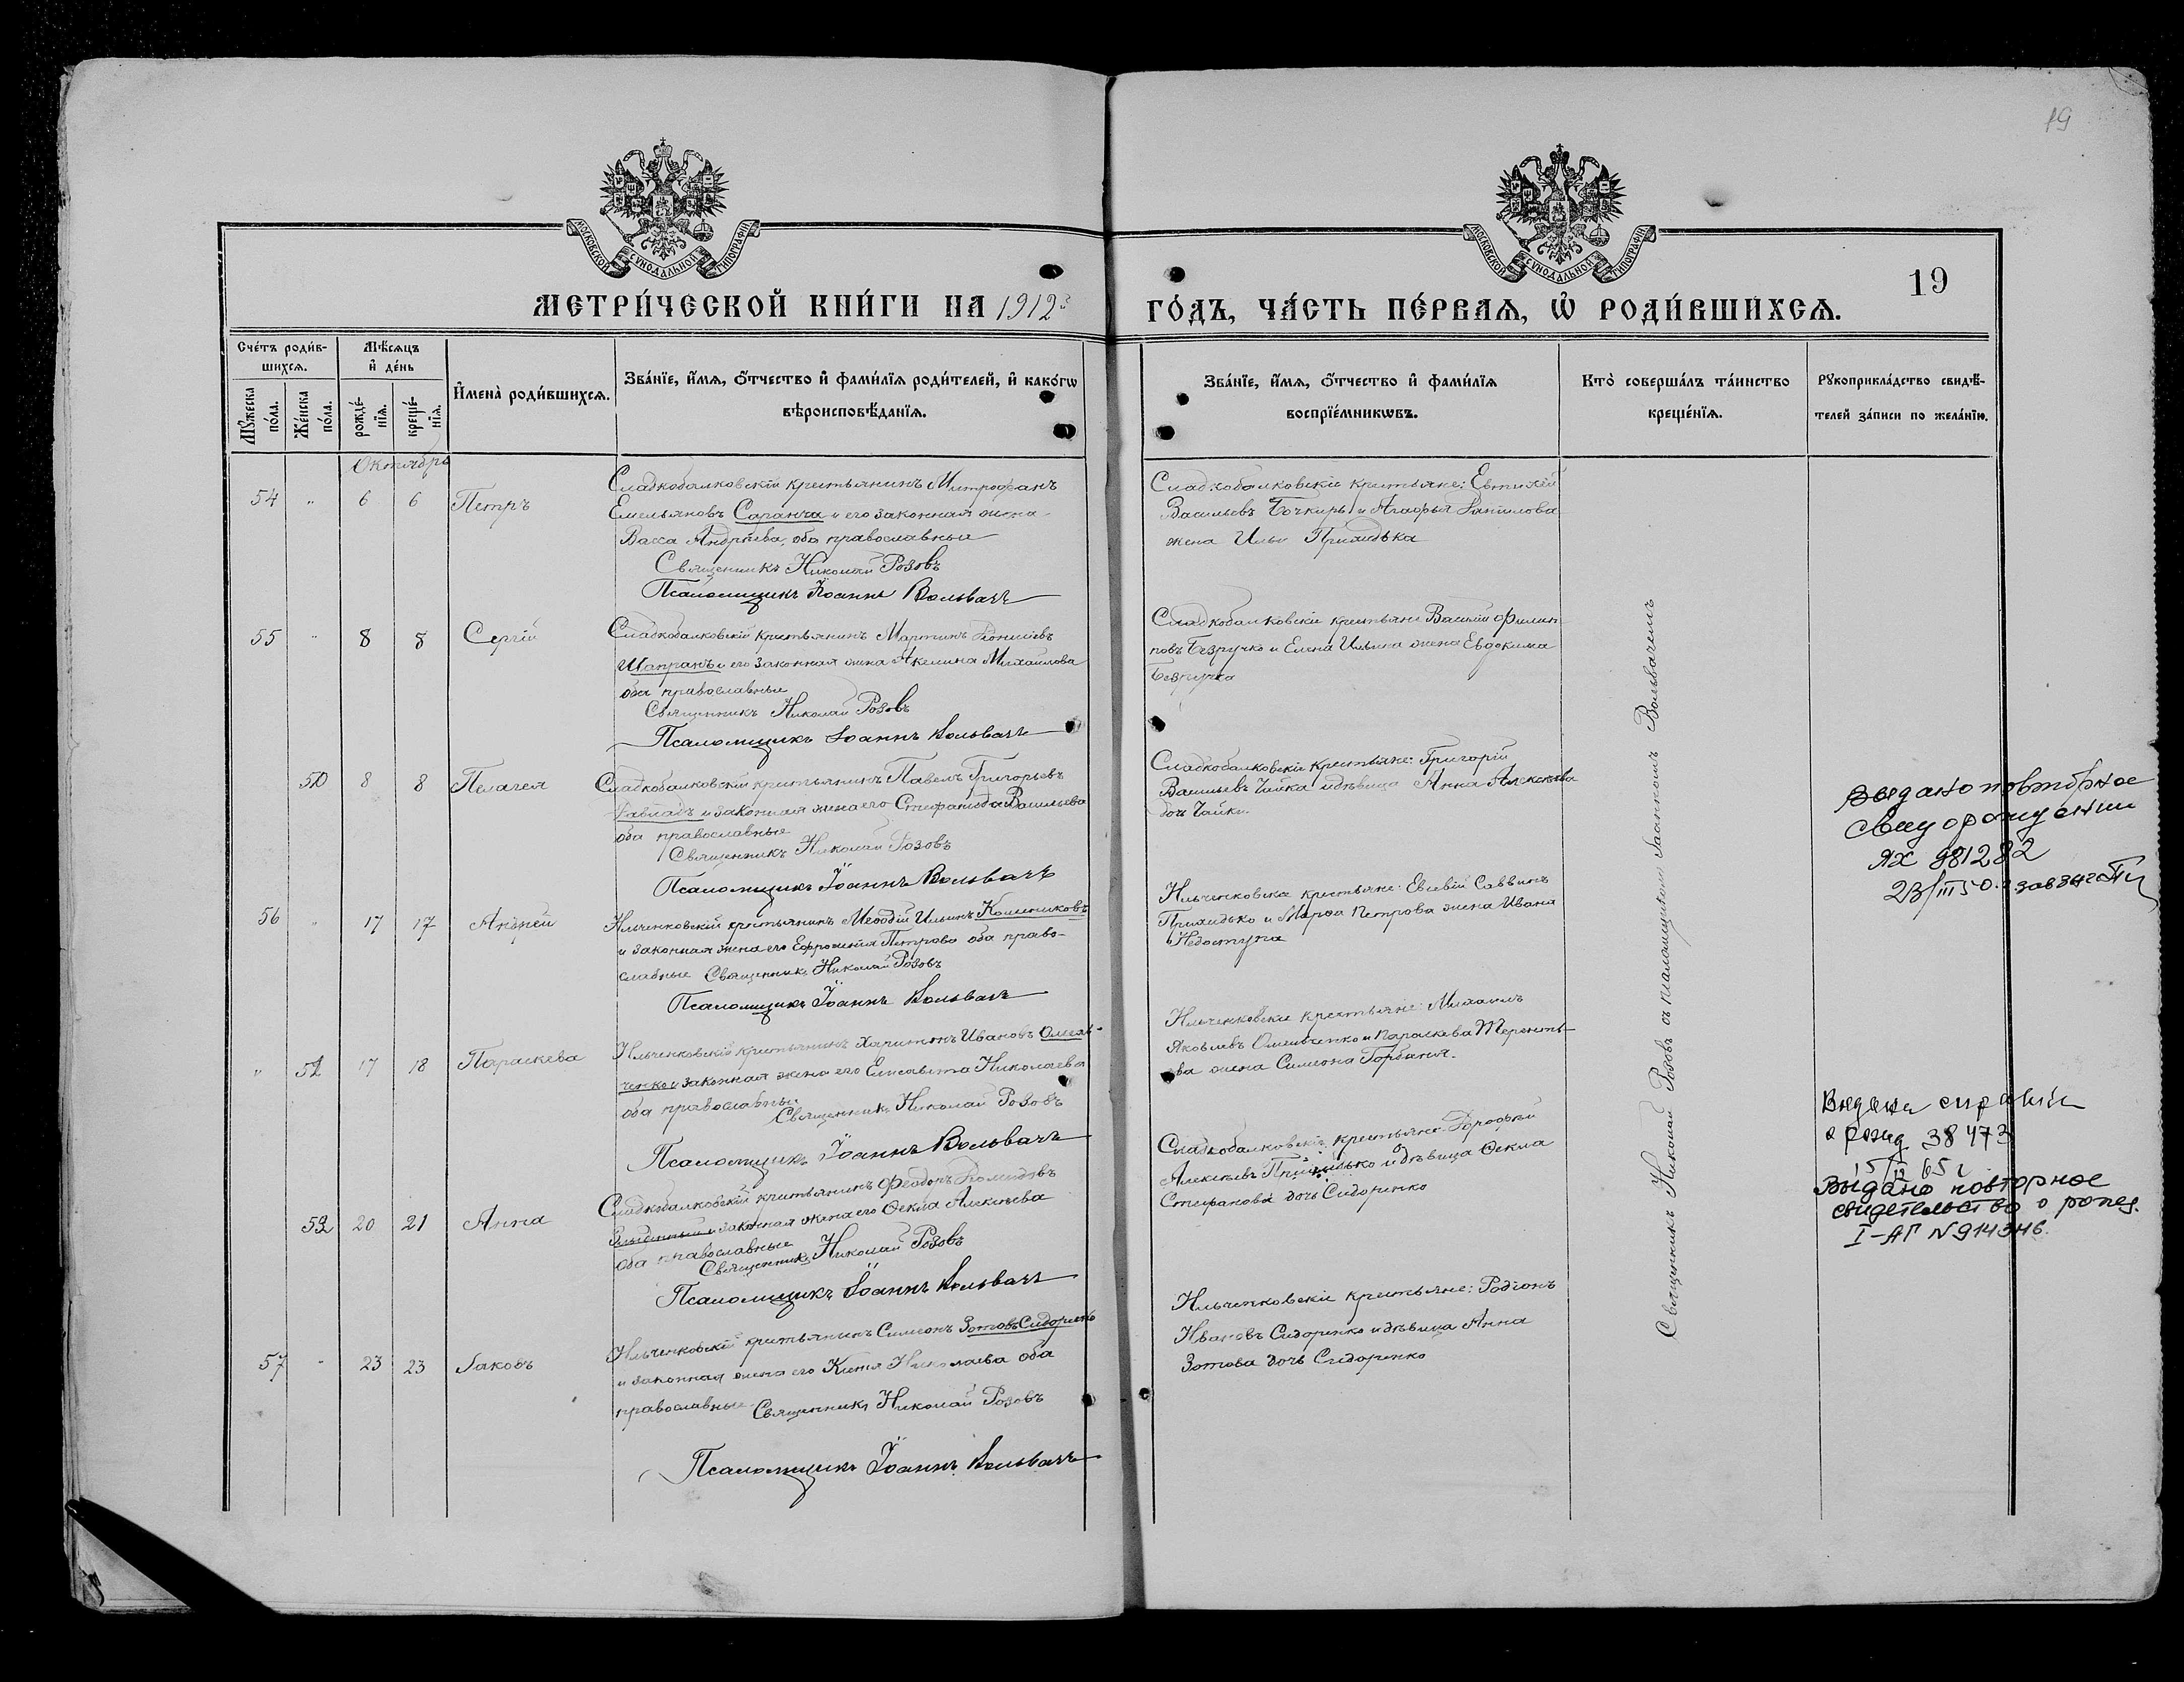 19
МОСКОВСКОЙ СУНОДАЛЬНОЙ ТИПОГРАФІИ
МОСКОВСКОЙ СУНОДАЛЬНОЙ ТИПОГРАФІИ
МЕТРИ́ЧЕСКОЙ КНИ́ГИ НА 1912
ГО́ДЪ, ЧА́СТЬ ПЕ́РВАЯ, Ѡ҆ РОДИ́ВШИХСЯ.
19
Сче́тъ роди́в-
шихся.
Мѣ́сяцъ
и҆ де́нь
Мꙋ́жеска по́ла.
Же́нска по́ла.
рожде́нїя.
креще́нїя.
И҆мена̀ роди́вшихся.
Зва́нїе, и҆́мя, ѻ҆́тчество и҆ фами́лїя роди́телей, и҆ како́гѡ
вѣроисповѣ́данїя.
Зва́нїе, и҆́мя, ѻ҆́тчество и҆ фами́лїя
воспрїе́мникѡвъ.
Кто̀ соверша́лъ та́инство
креще́нїя.
Рꙋкоприкла́дство свидѣ́-
телей за́писи по жела́нїю.
Октябрь
54 " 6 6 Петръ
Сладкобалковскій крестьянинъ Митрофанъ
Емельяновъ Саранча и его законная жена
Васса Андрѣева, оба православные
Священникъ Николай Розовъ
Псаломщикъ Іоаннъ Вольвачъ
Сладкобалковскіе крестьяне: Евтихій
Васильевъ Бочкирь и Агафья Данилова
жена Ильи
55 " 8 8 Сергій
Сладкобалковскій крестьянинъ Мартинъ
Шапранъ и его законная жена Акилина Михаилова
оба православные
Священникъ Николай Розовъ
Псаломщикъ Іоаннъ Вольвачъ
Сладкобалковскіе крестьяне Василій Филип-
повъ Безручко и Елена Ильина жена Евдокима
Безручка
50 8 8 Пелагея
Сладкобалковскій крестьянинъ Павелъ Григорьевъ
и законная жена его Стефанида Васильева
оба православные
Священникъ Николай Розовъ
Псаломщикъ Іоаннъ Вольвачъ
Сладкобалковскіе крестьяне: Григорій
Васильевъ Чайка и дѣвица Анна Алексѣева
дочь Чайки.
Выдано повторное
ЯХ 981282
56 " 17 17 Андрей
Ильченковскій крестьянинъ Меѳодій Ильинъ Колесниковъ
и законная жена его Ефросинія Петрова оба право-
славные Священникъ Николай Розовъ
Псаломщикъ Іоаннъ Вольвачъ
Ильченковскіе крестьяне: Евсевій Саввинъ
и Марѳа Петрова жена Ивана
Недоступа
" 51 17 18 Параскева
Ильченковскій крестьянинъ Харитонъ Ивановъ Омель-
ченко и законная жена его Елисавета Николаева
оба православные
Священникъ Николай Розовъ
Псаломщикъ Іоаннъ Вольвачъ
Ильченковскіе крестьяне: Михаилъ
Яковлевъ Омельченко и Параскева Терентье-
ва жена Симеона Горбаня.
52 20 21 Анна
Сладкобалковскій крестьянинъ Феодоръ
и законная жена его Ѳекла Алексѣева
оба православные
Священникъ Николай Розовъ
Псаломщикъ Іоаннъ Вольвачъ
Сладкобалковскіе крестьяне: Дорофей
Алексѣевъ и дѣвица Ѳекла
Стефанова дочь Сидоренко
Выдана справка
о рожд 38473
Выдано повторное
свидетельство о рожд.
I-АГ № 914346.
57 " 23 23 Іаковъ
Ильченковскій крестьянинъ Симеонъ Зотовъ Сидоренко
и законная жена его Ксенія Николаева оба
православные Священникъ Николай Розовъ
Псаломщикъ Іоаннъ Вольвачъ
Ильченковскіе крестьяне: Родіонъ
Ивановъ Сидоренко и дѣвица Анна
Зотова дочь Сидоренко
Священникъ Николай Розовъ съ псаломщикомъ Іоанномъ Вольвачемъ